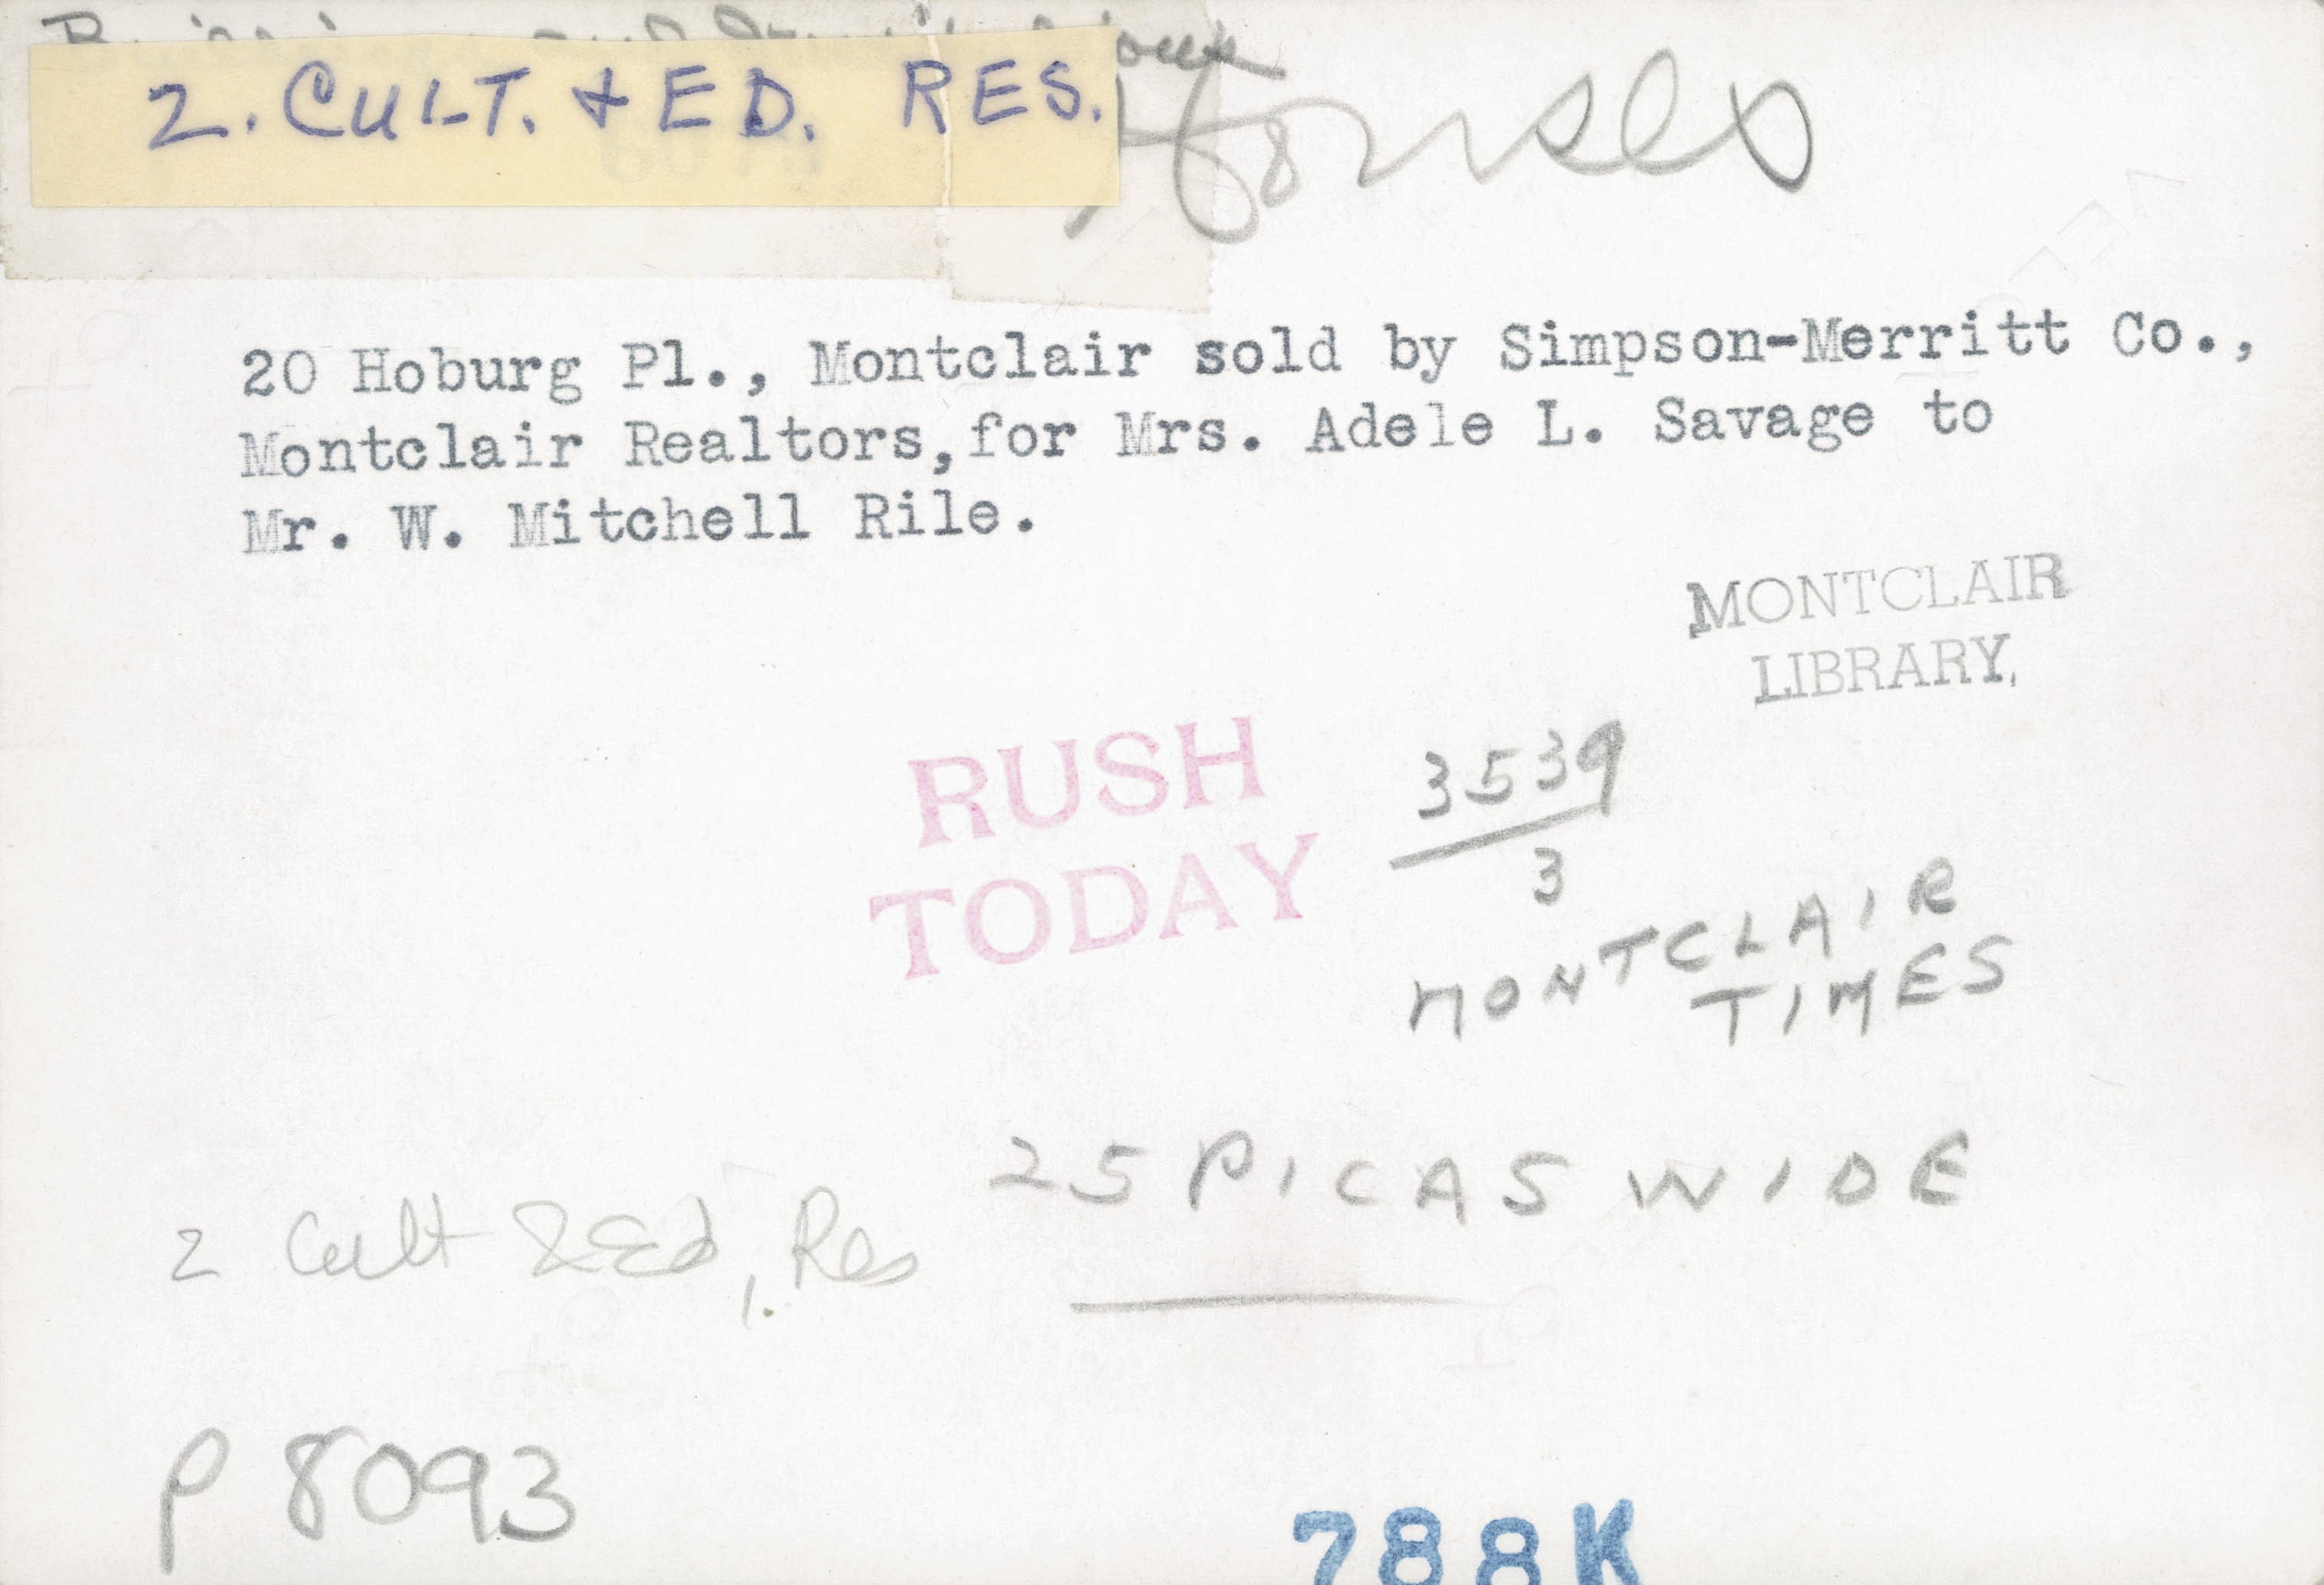 2. CULT. & ED. RES.
Houses
20 Hoburg Pl., Montclair sold by Simpson-Merritt Co.,
Montclair Realtors,for Mrs. Adele L. Savage to
Mr. W. Mitchell Rile.
MONTCLAIR
LIBRARY,
RUSH
TODAY
3539
3
MONTCLAIR
TIMES
25 PICAS WIDE
2 Cult & Ed, Res
P 8093
788K